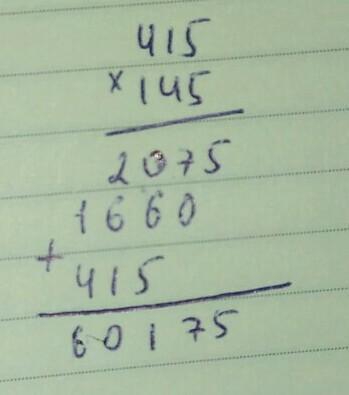 415
×145
2075
1660
+
415
60175